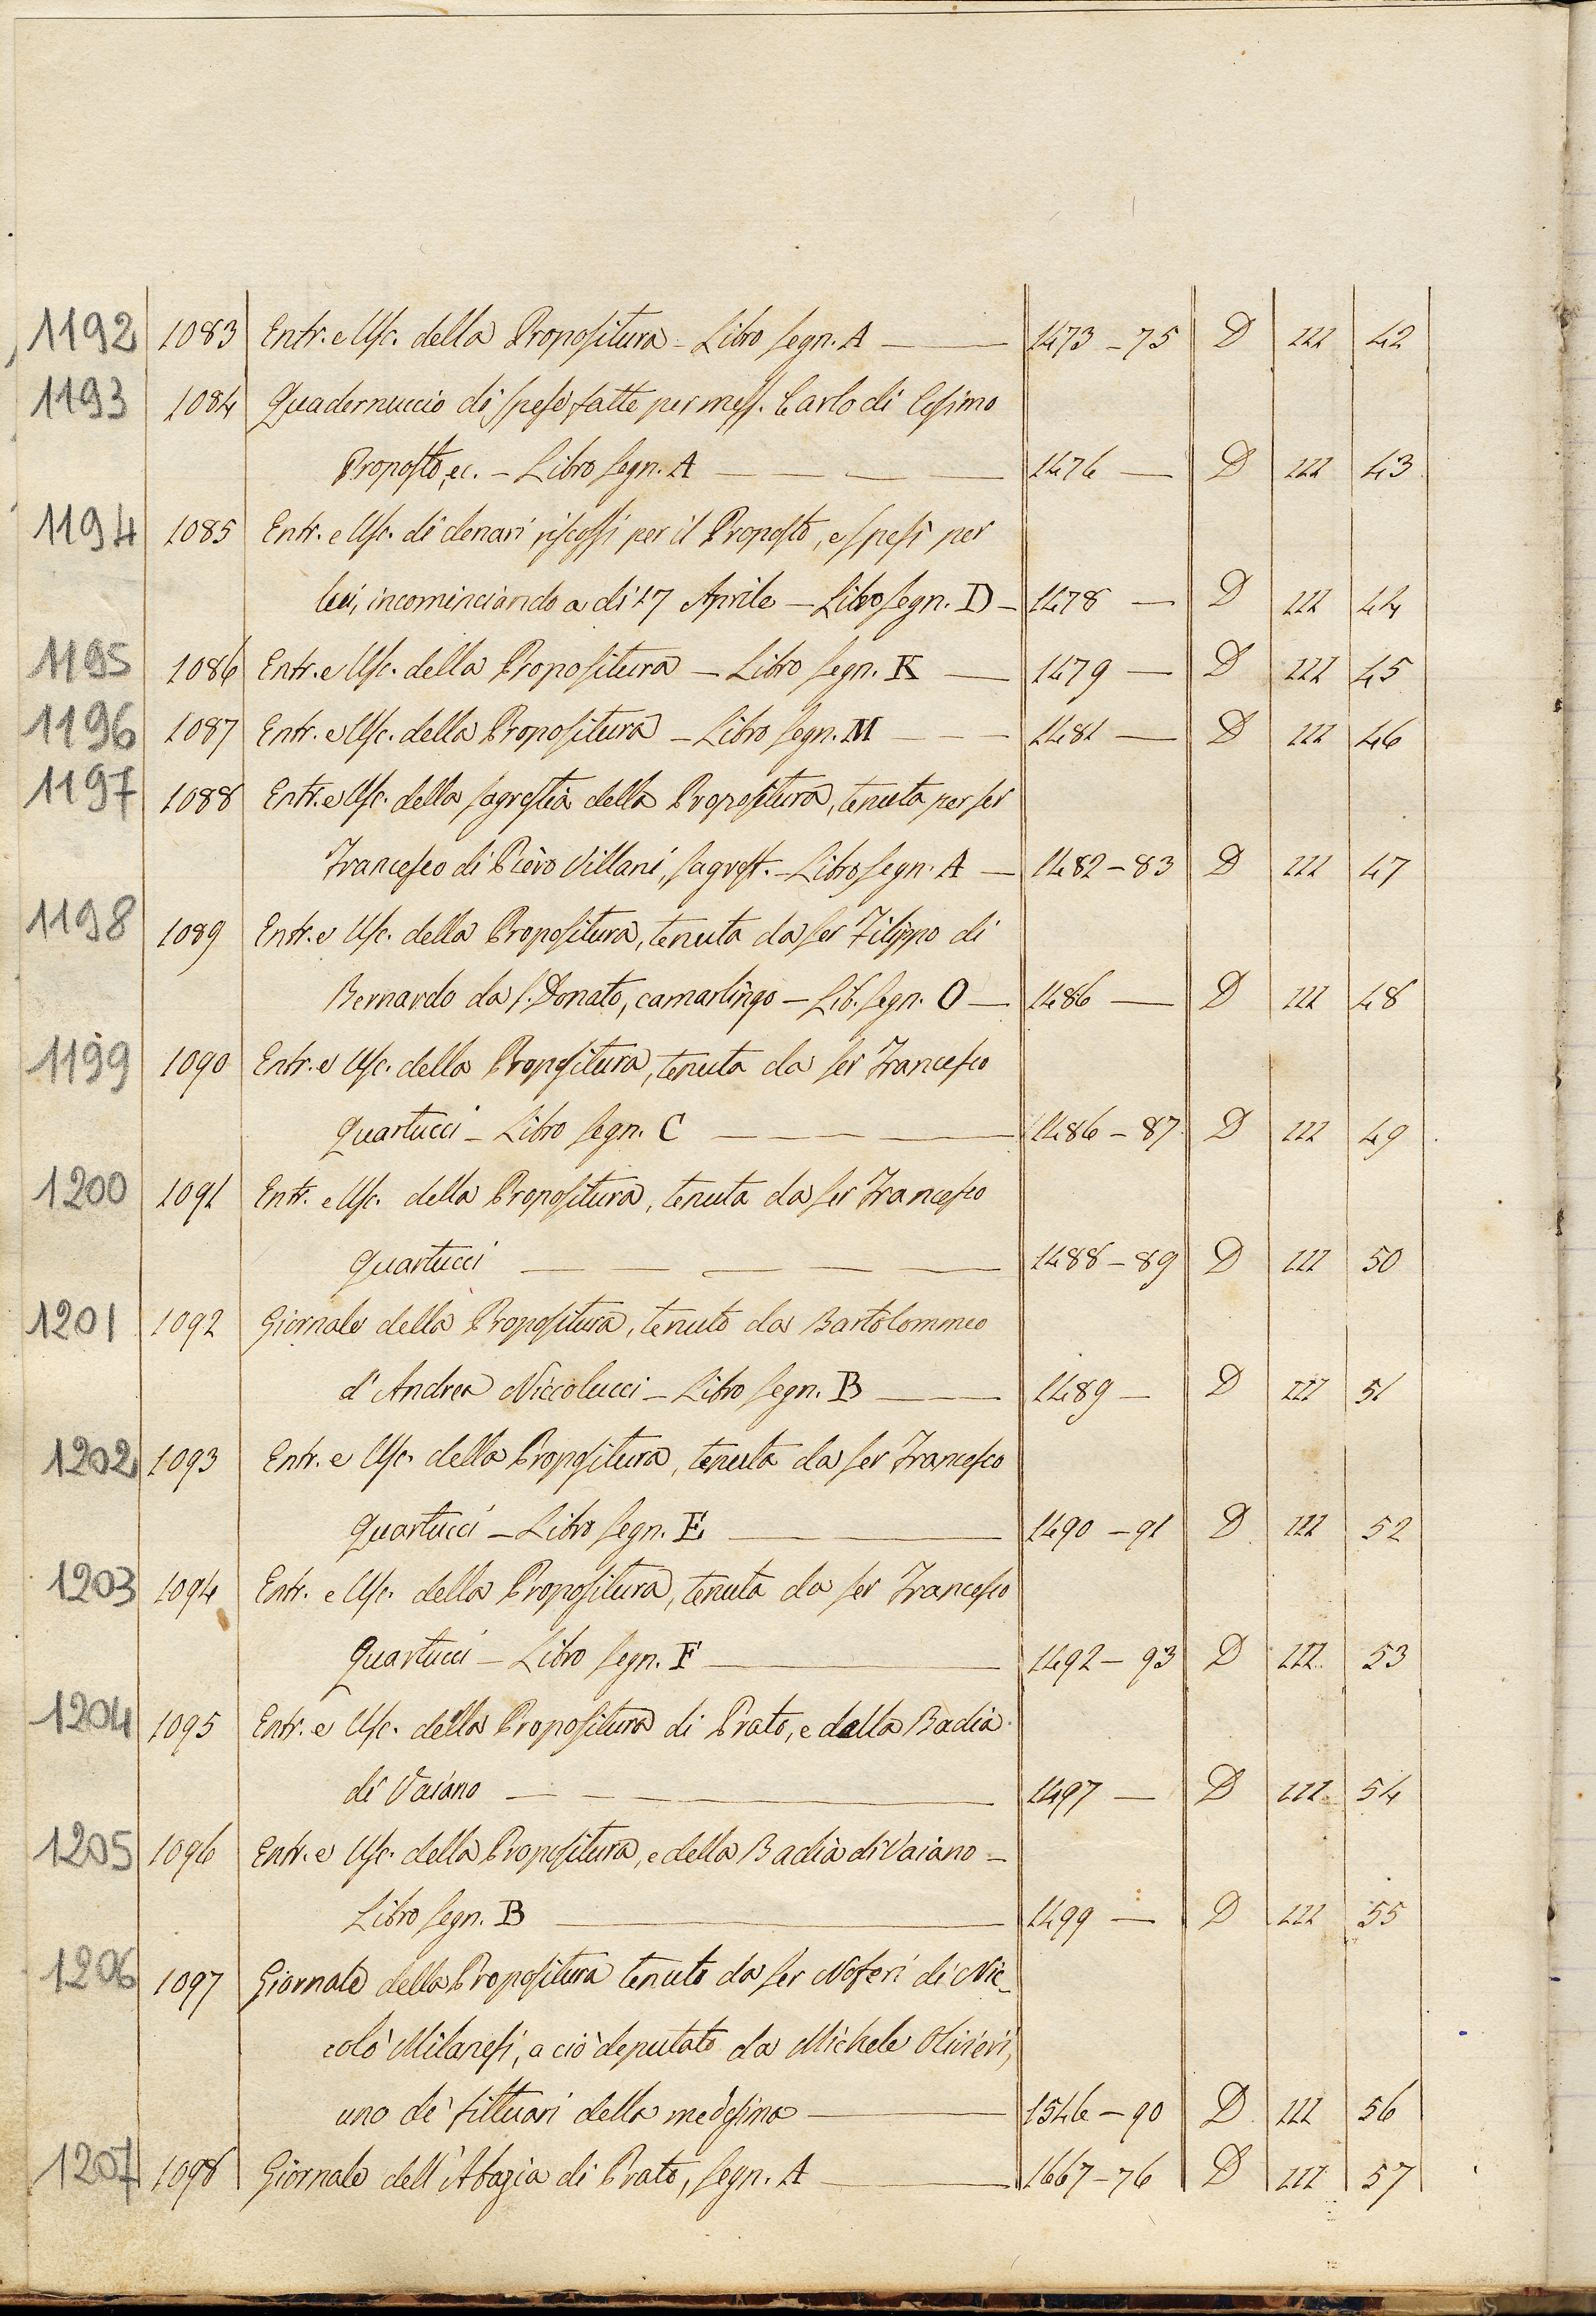 1192 1083 Entr. e Usc. della Propositura – Libro segn. A — 1473 – 75 D III 42
1193 1084 Quadernuccio di spese fatte per mess. Carlo di Cosimo
Proposto, ec. – Libro segn. A — — — 1476 — D III 43
1194 1085 Entr. e Usc. di denari riscossi per il Proposto, e spesi per
lui, incominciando a dì 17 Aprile – Libro segn. D – 1478 — D III 44
1195 1086 Entr. e Usc. della Propositura – Libro segn. K — 1479 — D III 45
1196 1087 Entr. e Usc. della Propositura – Libro segn. M — — 1481 — D III 46
1197 1088 Entr. e Usc. della sagrestia della Propositura, tenuta per ser
Francesco di Piero Villani, sagrest. – Libro segn. A — 1482 – 83 D III 47
1198 1089 Entr. e Usc. della Propositura, tenuta da ser Filippo di
Bernardo da S. Donato, camarlingo – Lib. segn. O — 1486 — D III 48
1199 1090 Entr. e Usc. della Propositura, tenuta da ser Francesco
Quartucci – Libro segn. C — — — 1486 – 87 D III 49
1200 1091 Entr. e Usc. della Propositura, tenuta da ser Francesco
Quartucci — — — — — 1488 – 89 D III 50
1201 1092 Giornale della Propositura, tenuto da Bartolommeo
d'Andrea Niccolucci – Libro segn. B — — 1489 – D III 51
1202 1093 Entr. e Usc. della Propositura, tenuta da ser Francesco
Quartucci – Libro segn. E — 1490 – 91 D III 52
1203 1094 Entr. e Usc. della Propositura, tenuta da ser Francesco
Quartucci – Libro segn. F — 1492 – 93 D III 53
1204 1095 Entr. e Usc. della Propositura di Prato, e della Badia
di Vaiano — — — 1497 — D III 54
1205 1096 Entr. e Usc. della Propositura, e della Badia di Vaiano –
Libro segn. B — 1499 — D III 55
1206 1097 Giornale della Propositura tenuto da ser Noferi di Nic-
colò Milanesi, a ciò deputato da Michele Olivieri,
uno de' fittuari della medesima — 1546 – 90 D III 56
1207 1098 Giornale dell'Abazia di Prato, segn. A — 1667 – 76 D III 57